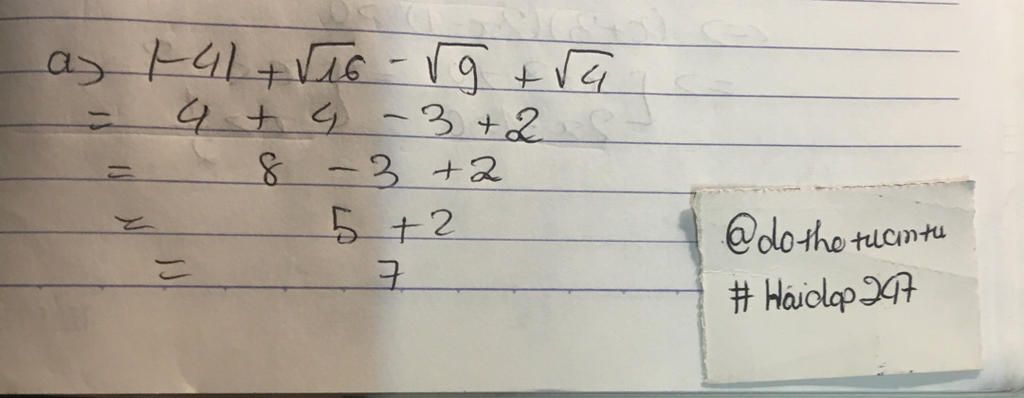 a) |-4| + √16 - √9 + √4
= 4 + 4 - 3 + 2
= 8 - 3 + 2
= 5 + 2
= 7
@dothotuantu
#Hoidap247